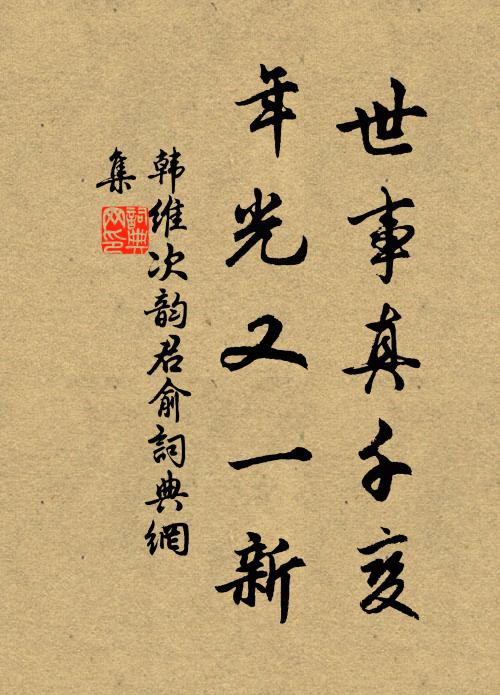 世事真千变
年光又一新
韩维次韵君俞詞典網
集
詞典网印